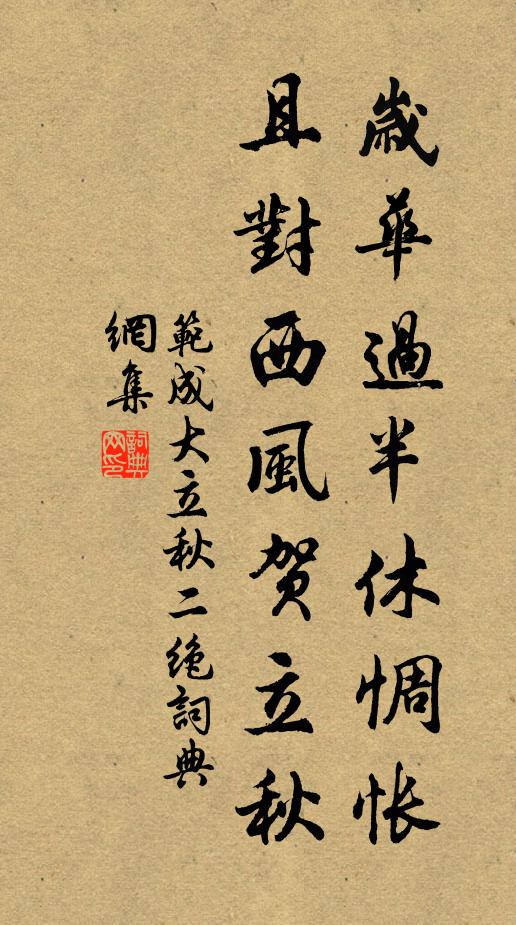 歲華過半休惆怅
且對西風贺立秋
範成大立秋二绝詞典
網集
詞典
网印